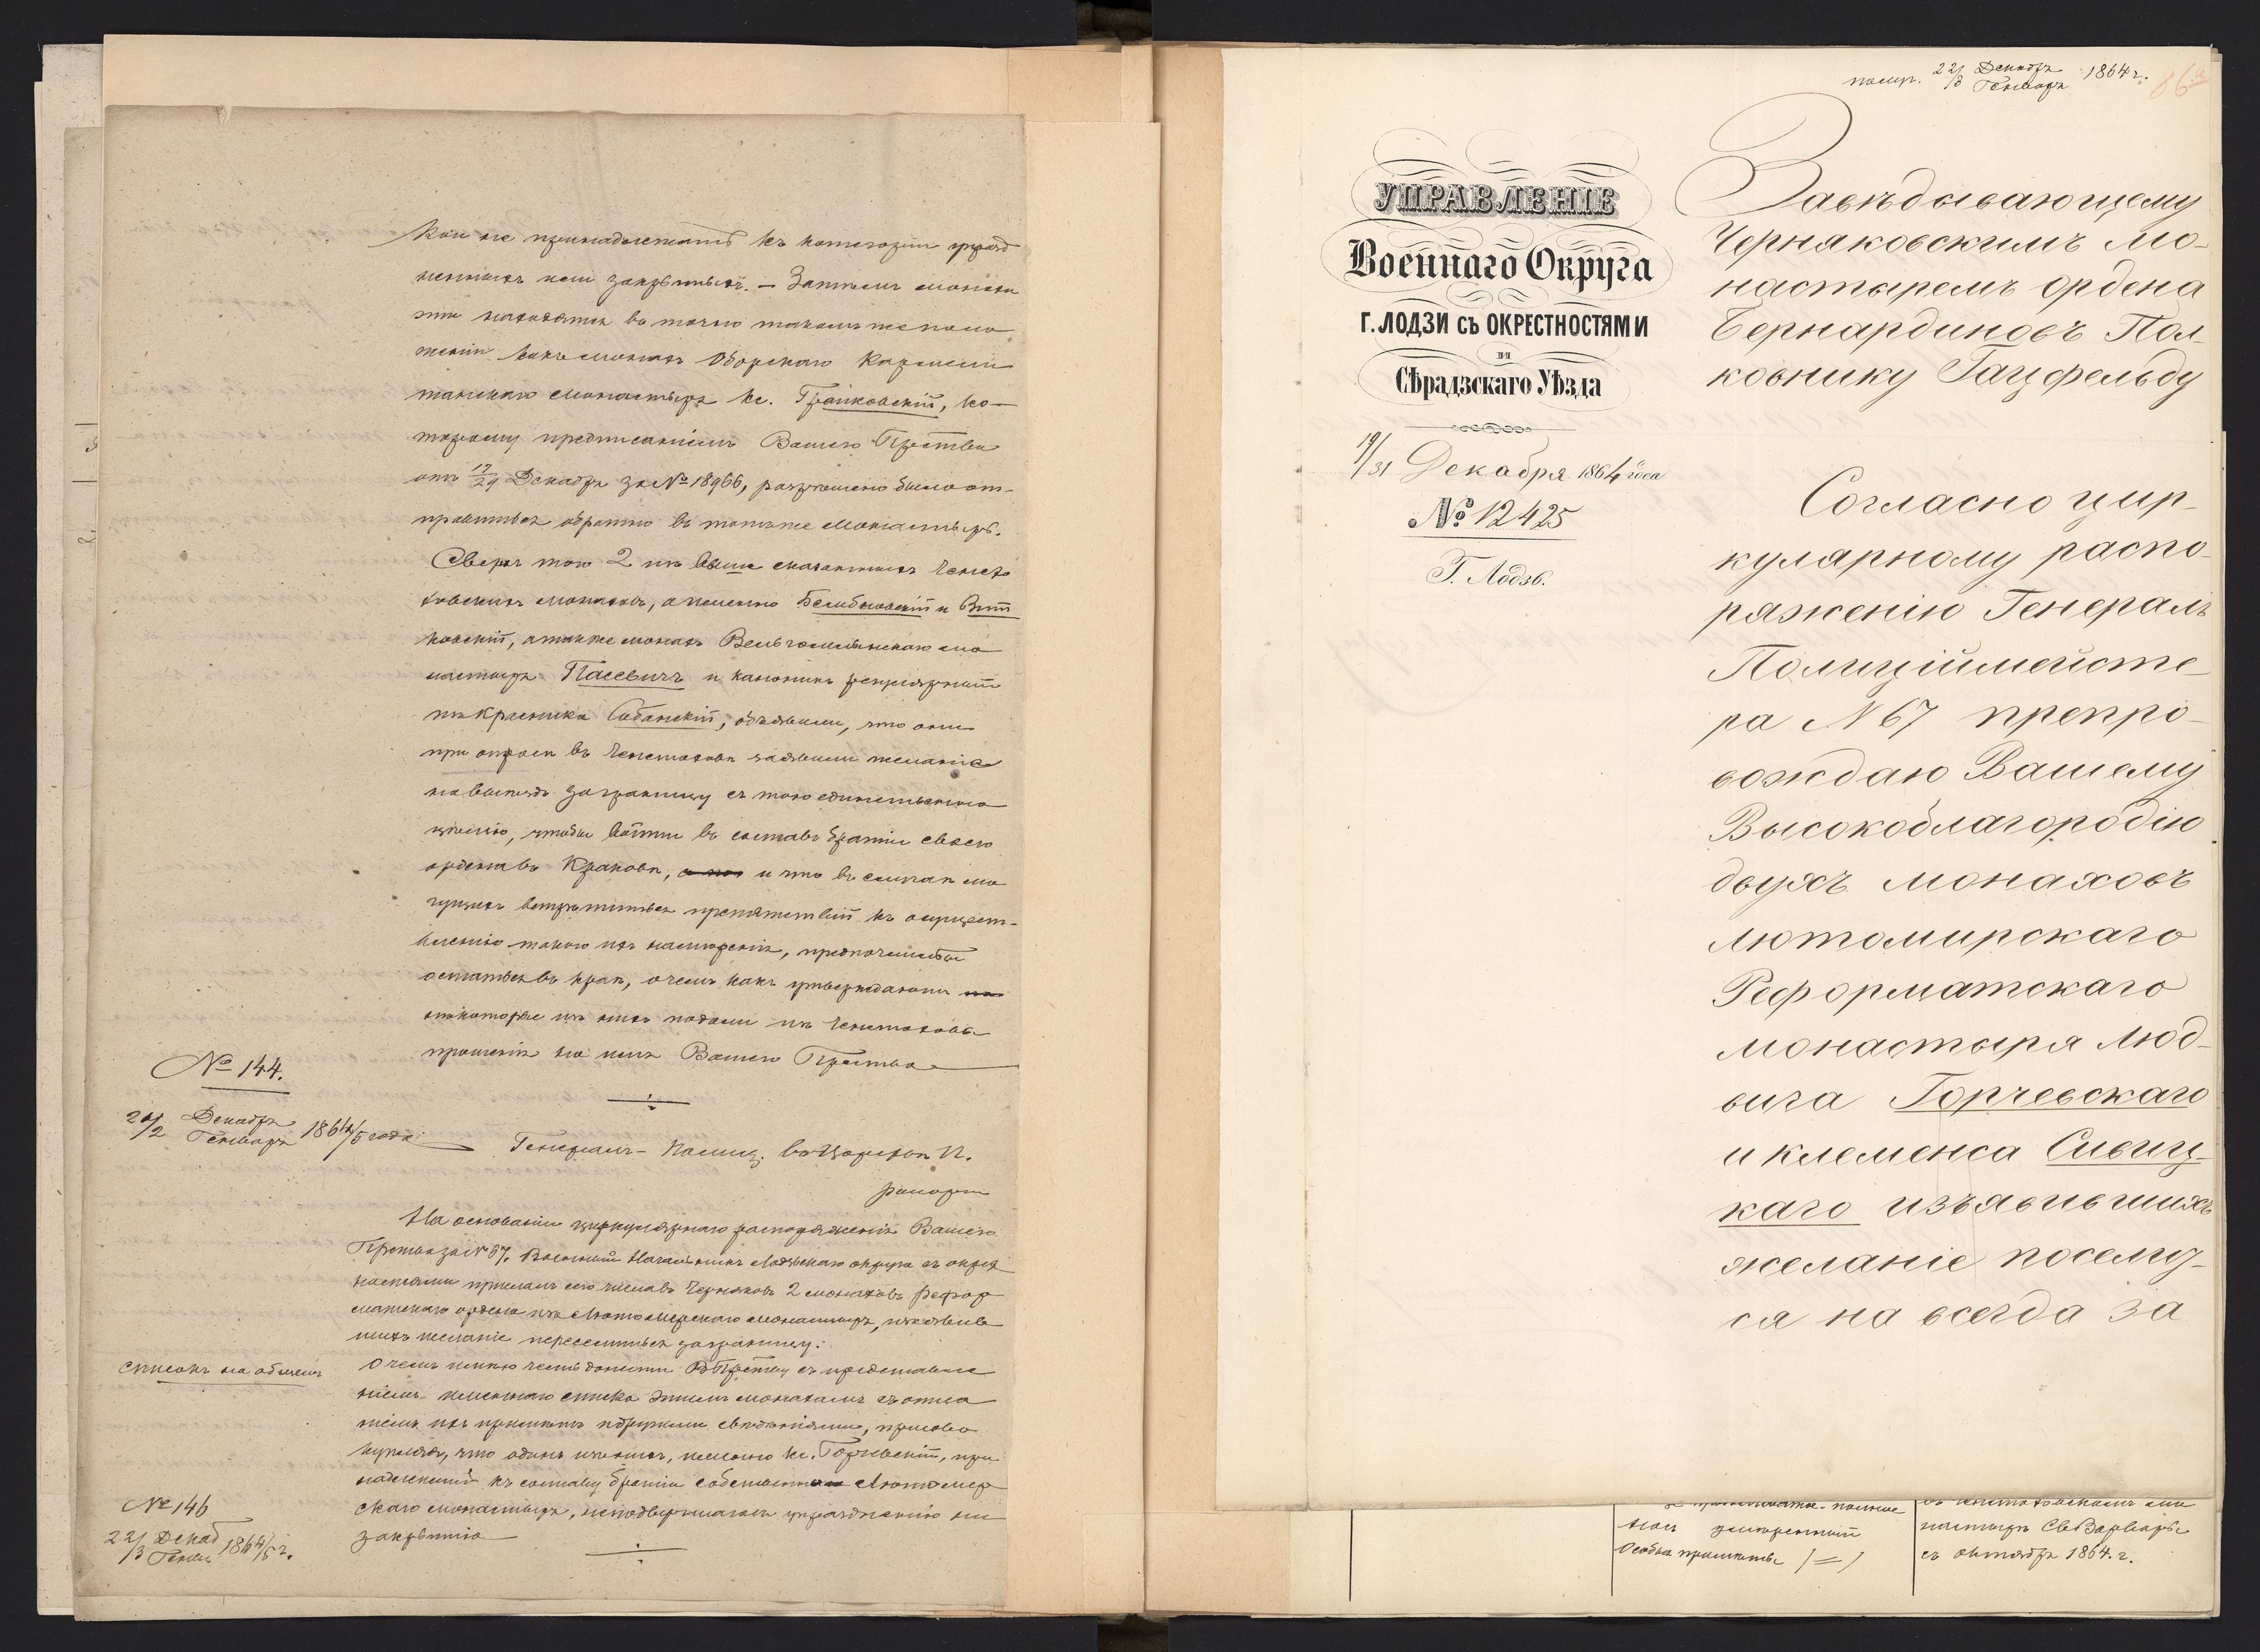 кои не принадлежатъ къ категоріи упразд
ненныхъ или закрытыхъ. — Затемъ монахи
эти находятся въ точно такомъ же поло
женіи какъ монахъ Оборскаго Кармели
танскаго монастыря кс. Грайковскій, ко-
торому предписаніемъ Вашего Прства
отъ 17/29 Декабря за № 18966, разрешено было от-
правиться обратно въ тотъ же монастырь.
Сверхъ того 2 изъ выше сказанныхъ Ченсто
ховскихъ монаховъ, а именно и Вит
ковскій, а также монахъ монастыря Пасевичъ и каноникъ регулярный
изъ Красника Собанскій, объявили, что они
при опросе въ Ченстохове заявили желаніе
на выездъ заграницу съ тою единственною
целію, чтобы войти въ составъ братіи своего
ордена въ Кракове, и что въ случае мо
гущихъ встретиться препятствій къ осущест-
вленію такого ихъ намеренія, предпочитали бы
остаться въ крае, о чемъ какъ утверждаютъ
некоторые изъ нихъ подали изъ Ченстохова
прошенія на имя Вашего Прства
№ 144.
21/2 Декабря Генваря 1864/5 года
Генералъ-Полиц. въ Царстве П.
рапортъ
На основаніи циркулярнаго распоряженія Вашего
Прства за № 67. Военный Начальникъ Лодзскаго округа съ окрест
ностями прислалъ сего числа въ Черняковъ 2 монаховъ рефор
матскаго ордена изъ Лютомерскаго монастыря, изъявив
шихъ желаніе переселиться заграницу.
Списокъ на обмене
О чемъ имею честь донести В Прству съ представле
ніемъ именнаго списка этимъ монахамъ съ описа
ніемъ ихъ приметъ и другими сведеніями, присово
купляя, что одинъ изъ нихъ, именно кс. Горчевскій, при
надлежитъ къ составу братіи собственно Лютомер
скаго монастыря, неподвергшагося упраздненію или
закрытію
№ 146
22/3 Декаб Генв 1864/5 г.
получ. 22/3 Декабря Генваря 1864 г.
86
УПРАВЛЕНІЕ
Военнаго Округа
Г. ЛОДЗИ СЪ ОКРЕСТНОСТЯМИ
и
Сѣрадзскаго Уѣзда
19/31 Декабря 1864 года
№ 12425
Г. Лодзь.
Завѣдывающему
Черняковскимъ мо-
настыремъ ордена
Бернардиновъ Пол-
ковнику Гацфельду
Согласно цир-
кулярному распо-
ряженію Генералъ
Полиційместе-
ра № 67 препро-
вождаю Вашему
Высокоблагородію
двухъ монаховъ
лютомирскаго
Реформатскаго
монастыря Люд-
вига Горчевскаго
и клеменса Сивиц-
каго изъявившихъ
желаніе поселить-
ся на всегда за
ной умеренный
Особыя приметы (=)
въ Ченстоховскомъ мо
настыре Св Варвары
съ октября 1864 г.